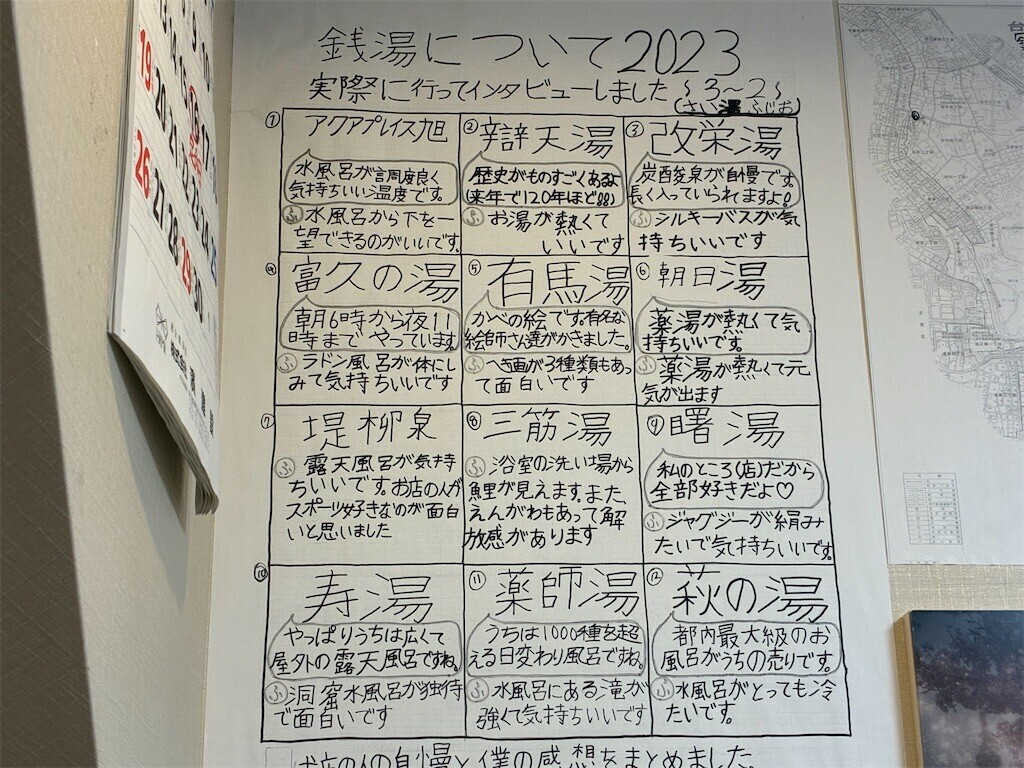 銭湯について2023
実際に行ってインタビューしました 〜3〜2〜
① アクアプレイス旭
水風呂が調度良く
気持ちいい温度です。
ふ 水風呂から下を一
望できるのがいいです。
② 辯天湯
歴史がものすごくあるよ
(来年で120年ほど!!)
ふ お湯が熱くて
いいです
③ 改栄湯
炭酸泉が自慢です。
長く入っていられますよ!
ふ シルキーバスが気
持ちいいです
④ 富久の湯
朝6時から夜11
時までやっています
ふ ラドン風呂が体にし
みて気持ちいいです
⑤ 有馬湯
かべの絵です。有名な
絵師さん達がかきました。
ふ へき画が3種類もあっ
て面白いです
⑥ 朝日湯
薬湯が熱くて気
持ちいいです。
ふ 薬湯が熱くて元
気が出ます
⑦ 堤柳泉
ふ 露天風呂が気持
ちいいです。お店の人が
スポーツ好きなのが面白
いと思いました
⑧ 三筋湯
ふ 浴室の洗い場から
鯉が見えます。また、
えんがわもあって解
放感があります
⑨ 曙湯
私のところ(店)だから
全部好きだよ♡
ふ ジャグジーが絹み
たいで気持ちいいです。
⑩ 寿湯
やっぱりうちは広くて
屋外の露天風呂ですね。
ふ 洞窟水風呂が独特
で面白いです
⑪ 薬師湯
うちは1000種を超
える日変わり風呂ですね。
ふ 水風呂にある滝が
強くて気持ちいいです
⑫ 萩の湯
都内最大級のお
風呂がうちの売りです。
ふ 水風呂がとっても冷
たいです。
お店の人の自慢と僕の感想をまとめました。
19 20 21
26 27 28 29 30